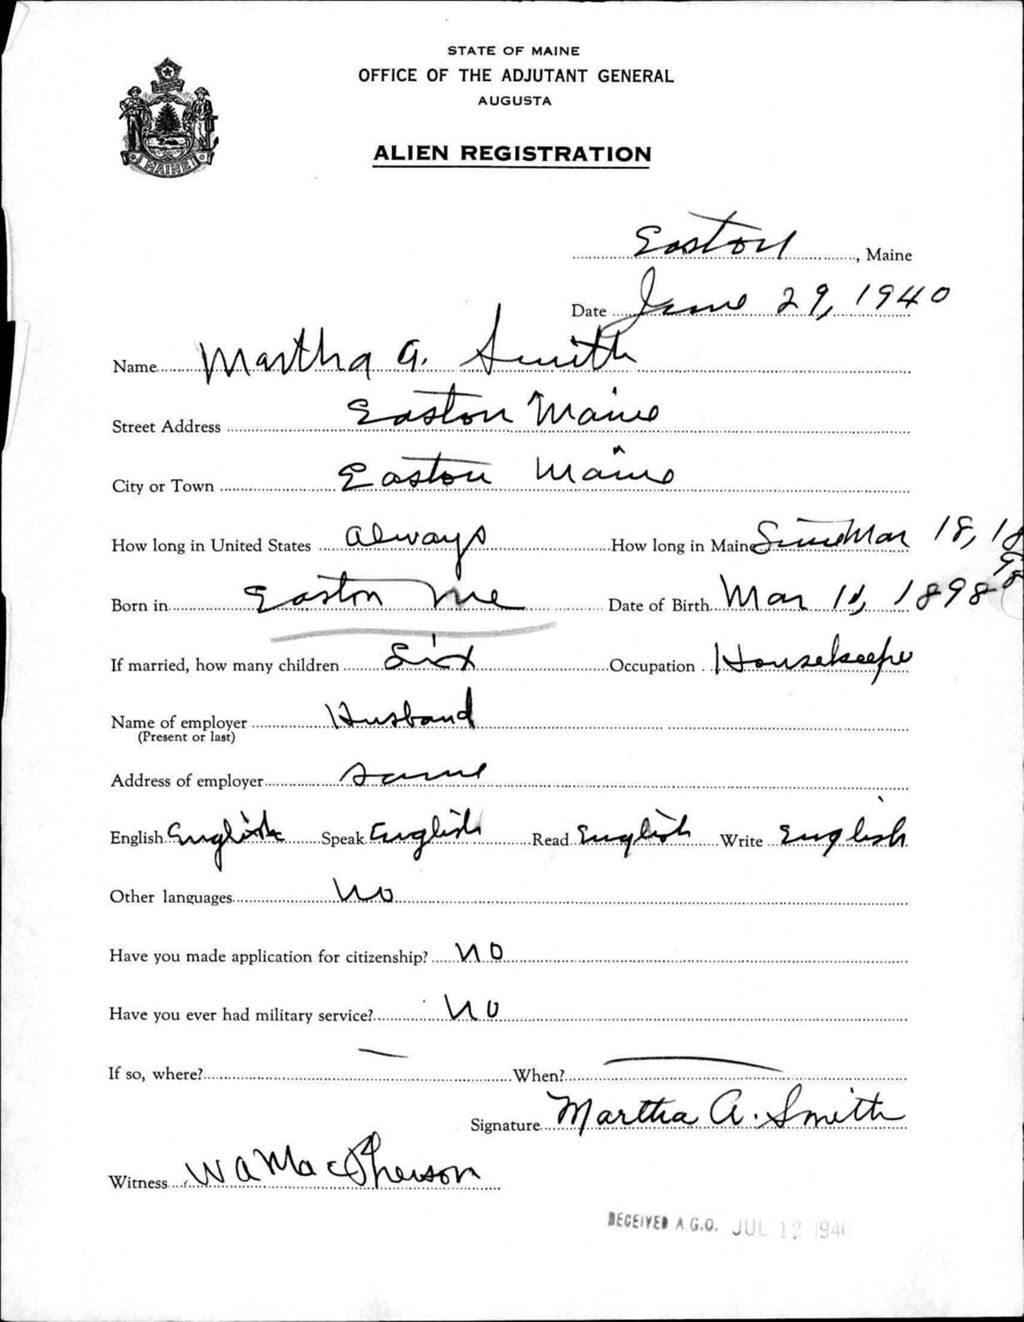 STATE OF MAINE
OFFICE OF THE ADJUTANT GENERAL
AUGUSTA
MAINE
ALIEN REGISTRATION
Easton, Maine
Date June 29, 1940
Name Martha A. Smith
Street Address Easton Maine
City or Town Easton Maine
How long in United States Always How long in Maine Since Mar 18, 1898
Born in Easton Me Date of Birth Mar 18, 1898
If married, how many children Six Occupation Housekeeper
Name of employer Husband
(Present or last)
Address of employer Same
English English Speak English Read English Write English
Other languages No
Have you made application for citizenship? No
Have you ever had military service? No
If so, where? — When? —
Signature Martha A. Smith
Witness W A MacPherson
RECEIVED A.G.O. JUL 12 1940